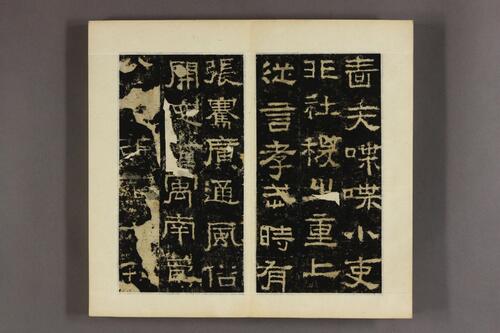 嗇夫喋喋小吏
非社稷之重上
從言孝武時有
張騫廣通風俗
開定畿寓南苞
八